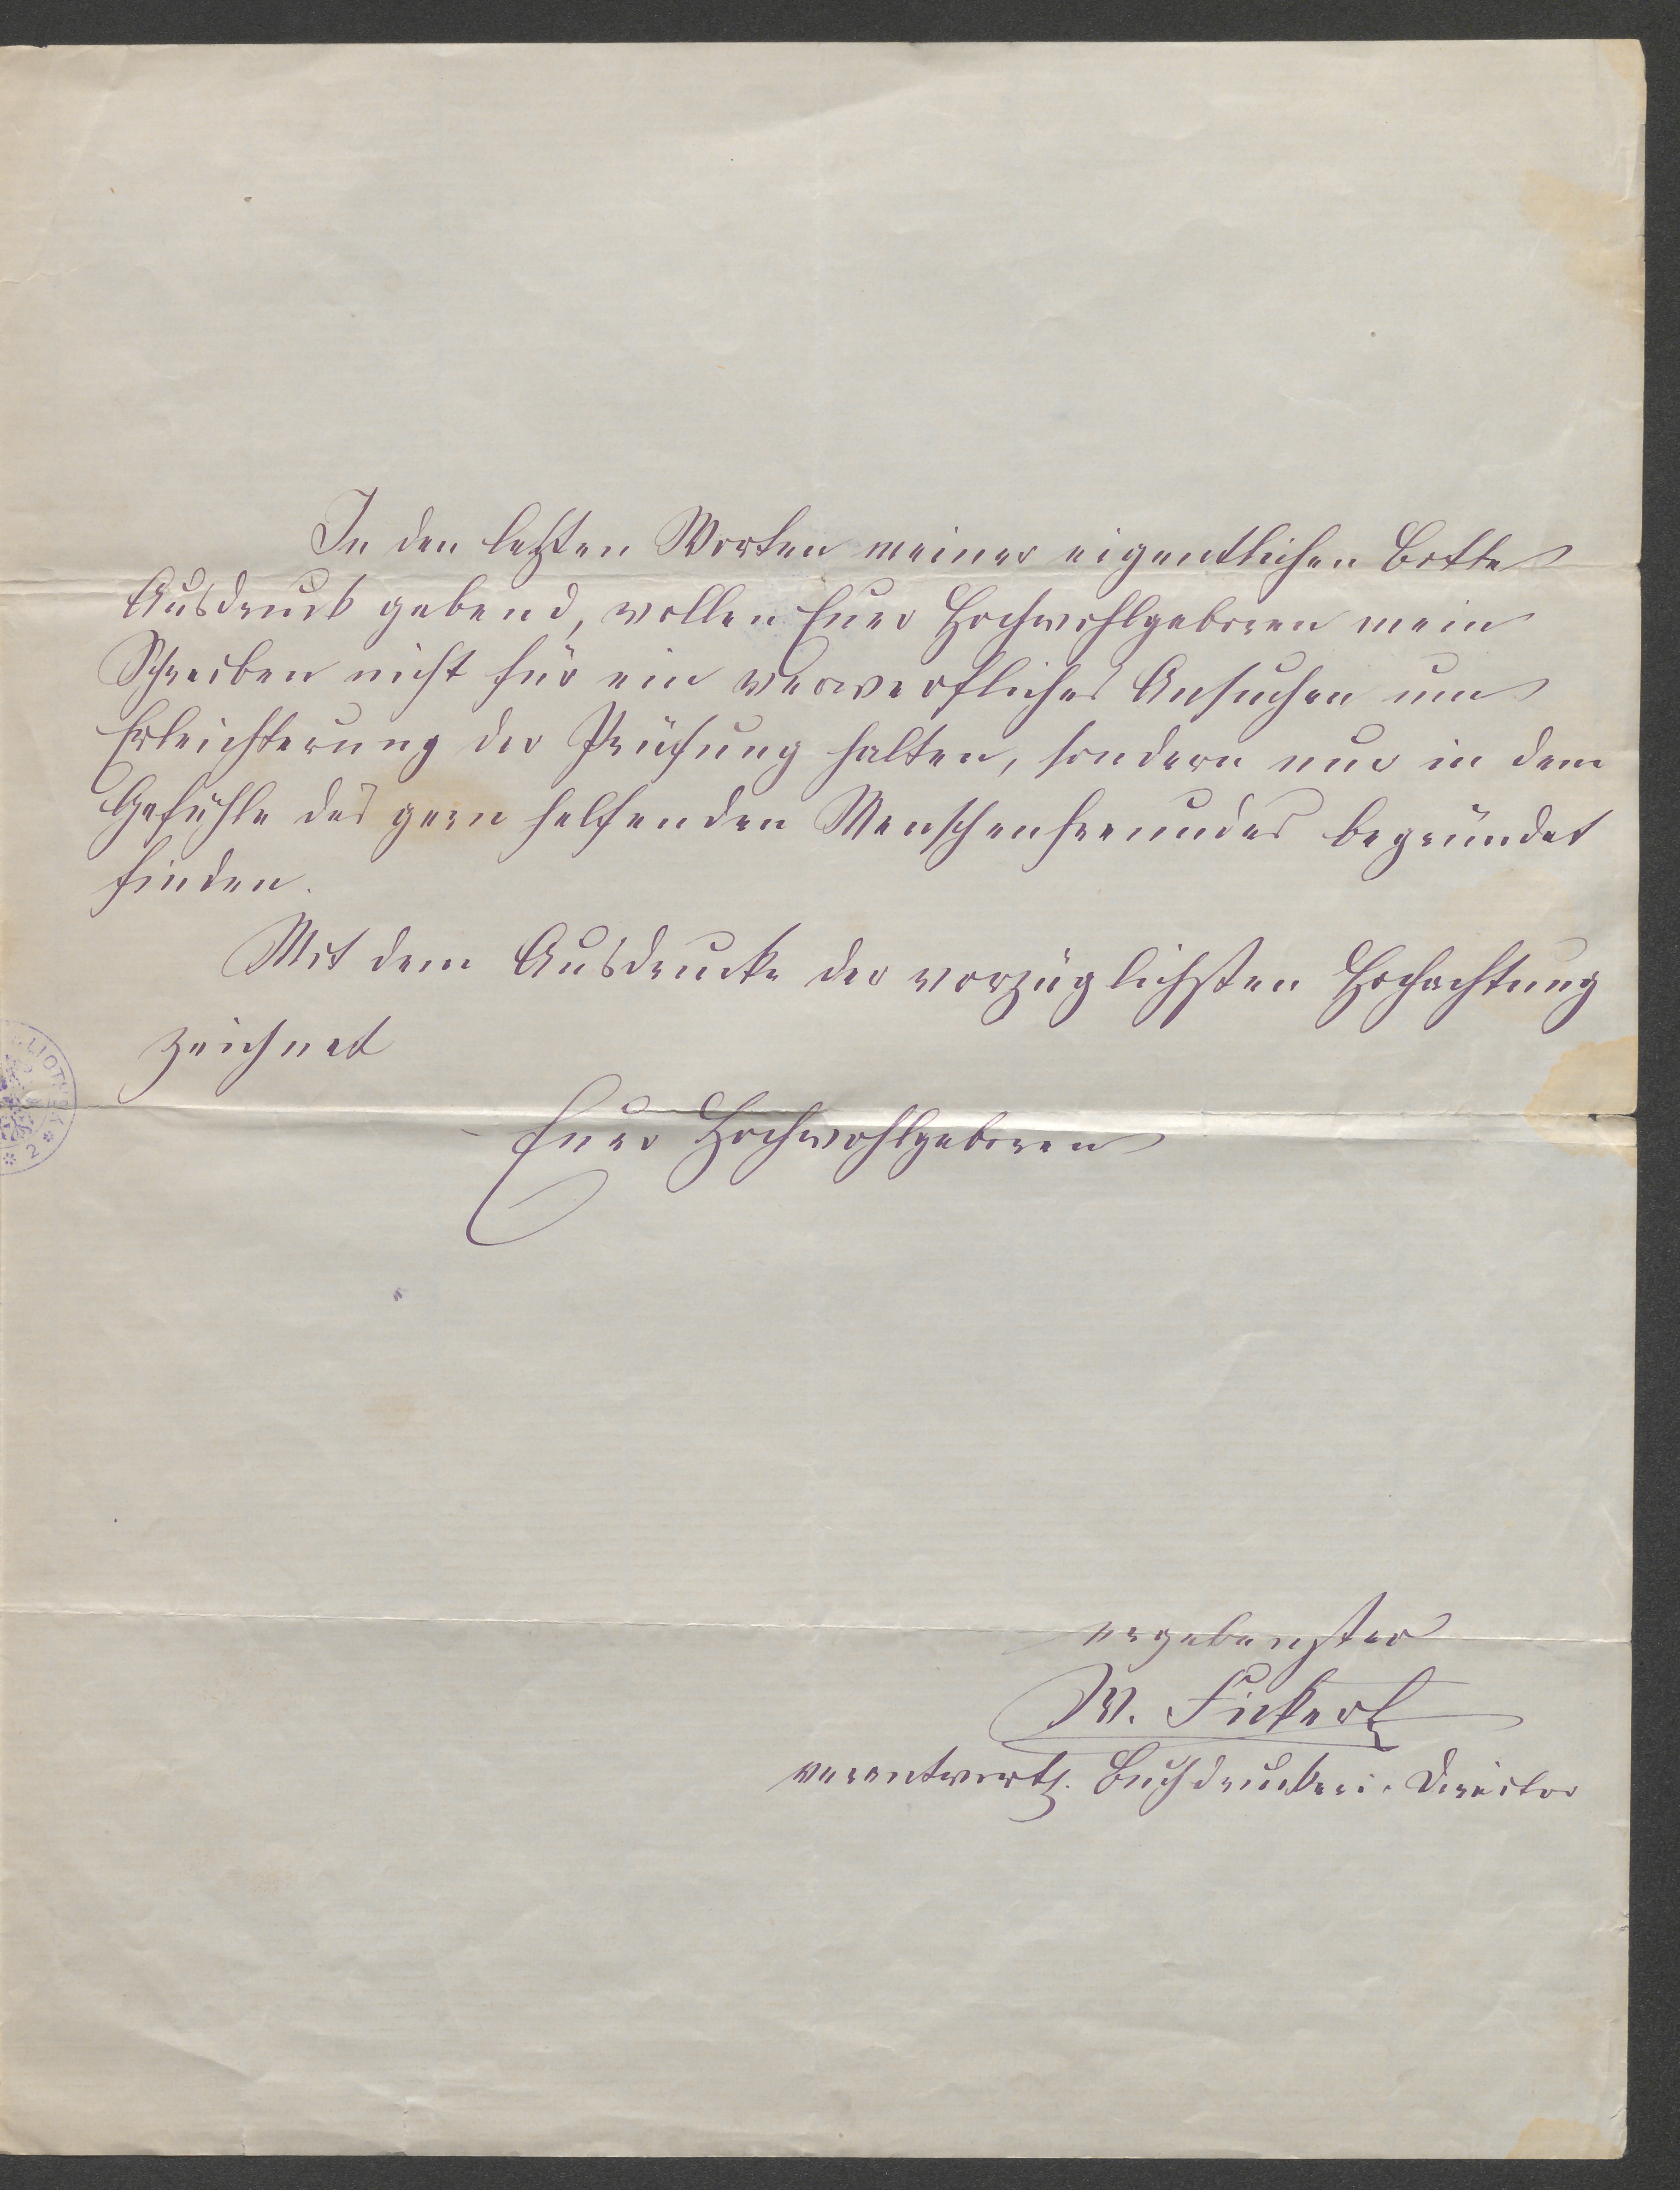 In den letzten Worten meiner eigentlichen Bitte
Ausdruck gebend, wollen Euer Hochwohlgeboren mein
Schreiben nicht für ein verwerfliches Ansuchen um
Erleichterung der Prüfung halten, sondern nur in dem
Gefühle des gern helfenden Menschenfreundes begründet
finden.
Mit dem Ausdrucke der vorzüglichsten Hochachtung
zeichnet
Euer Hochwohlgeboren
ergebenster
W. Fickert
verantwortl. Buchdruckerei-Director